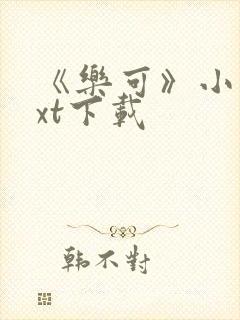 《樂可》小
xt下載
韩不對